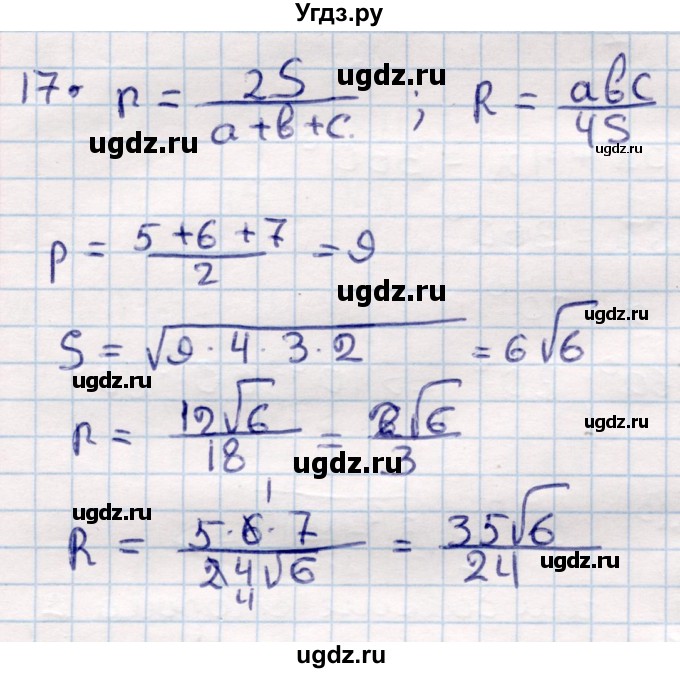 Угдз.ру
17. r = 2S / (a+b+c) ; R = abc / 4S
ugdz.ru
ugdz.ru
ugdz.ru
p = (5+6+7) / 2 = 9
ugdz.ru
ugdz.ru
S = √(9·4·3·2) = 6√6
ugdz.ru
r = 12√6 / 18 = 2√6 / 3
ugdz.ru
ugdz.ru
1
R = 5·6·7 / 24√6 = 35√6 / 24
4
ugdz.ru
ugdz.ru
ugdz.ru